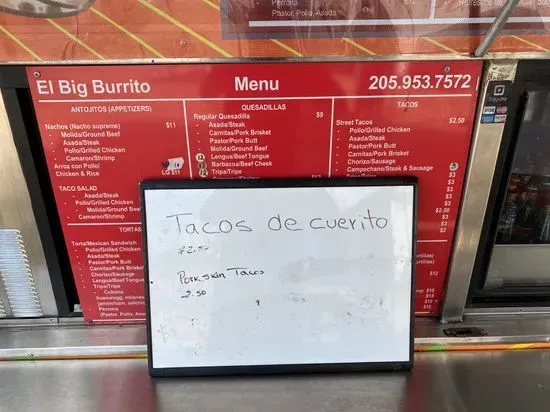 Pernona
Pastor, Pollo, Asada
El Big Burrito
Menu
205.953.7572
ANTOJITOS (APPETIZERS)
Nachos (Nacho supreme) $11
Molida/Ground Beef
- Asada/Steak
- Pollo/Grilled Chicken
- Camaron/Shrimp
Arroz con Pollo/
Chicken & Rice
LG $11
TACO SALAD
- Asada/Steak
- Pollo/Grilled Chicken
- Molida/Ground Beef
- Camaron/Shrimp
TORTAS
Torta/Mexican Sandwich
- Pollo/Grilled Chicken
- Asada/Steak
- Pastor/Pork Butt
- Carnitas/Pork Brisket
- Chorizo/Sausage
- Lengua/Beef Tongue
- Tripa/Tripe
- Cubana
- Pernona
(Pastor, Pollo,
QUESADILLAS
Regular Quesadilla $9
- Asada/Steak
- Carnitas/Pork Brisket
- Pastor/Pork Butt
- Molida/Ground Beef
- Lengua/Beef Tongue
- Barbacoa/Beef Cheek
- Tripa/Tripe
TACOS
Street Tacos $2.50
- Pollo/Grilled Chicken
- Asada/Steak
- Carnitas/Pork Brisket
- Pastor/Pork Butt
- Chorizo/Sausage
- Campechano/Steak & Sausage
$3
$3
$3
$2.50
$3
$3
$12
$15
$12
Square
VISA
Tacos de cuerito
$2.50
Pork skin Tacos
2.50